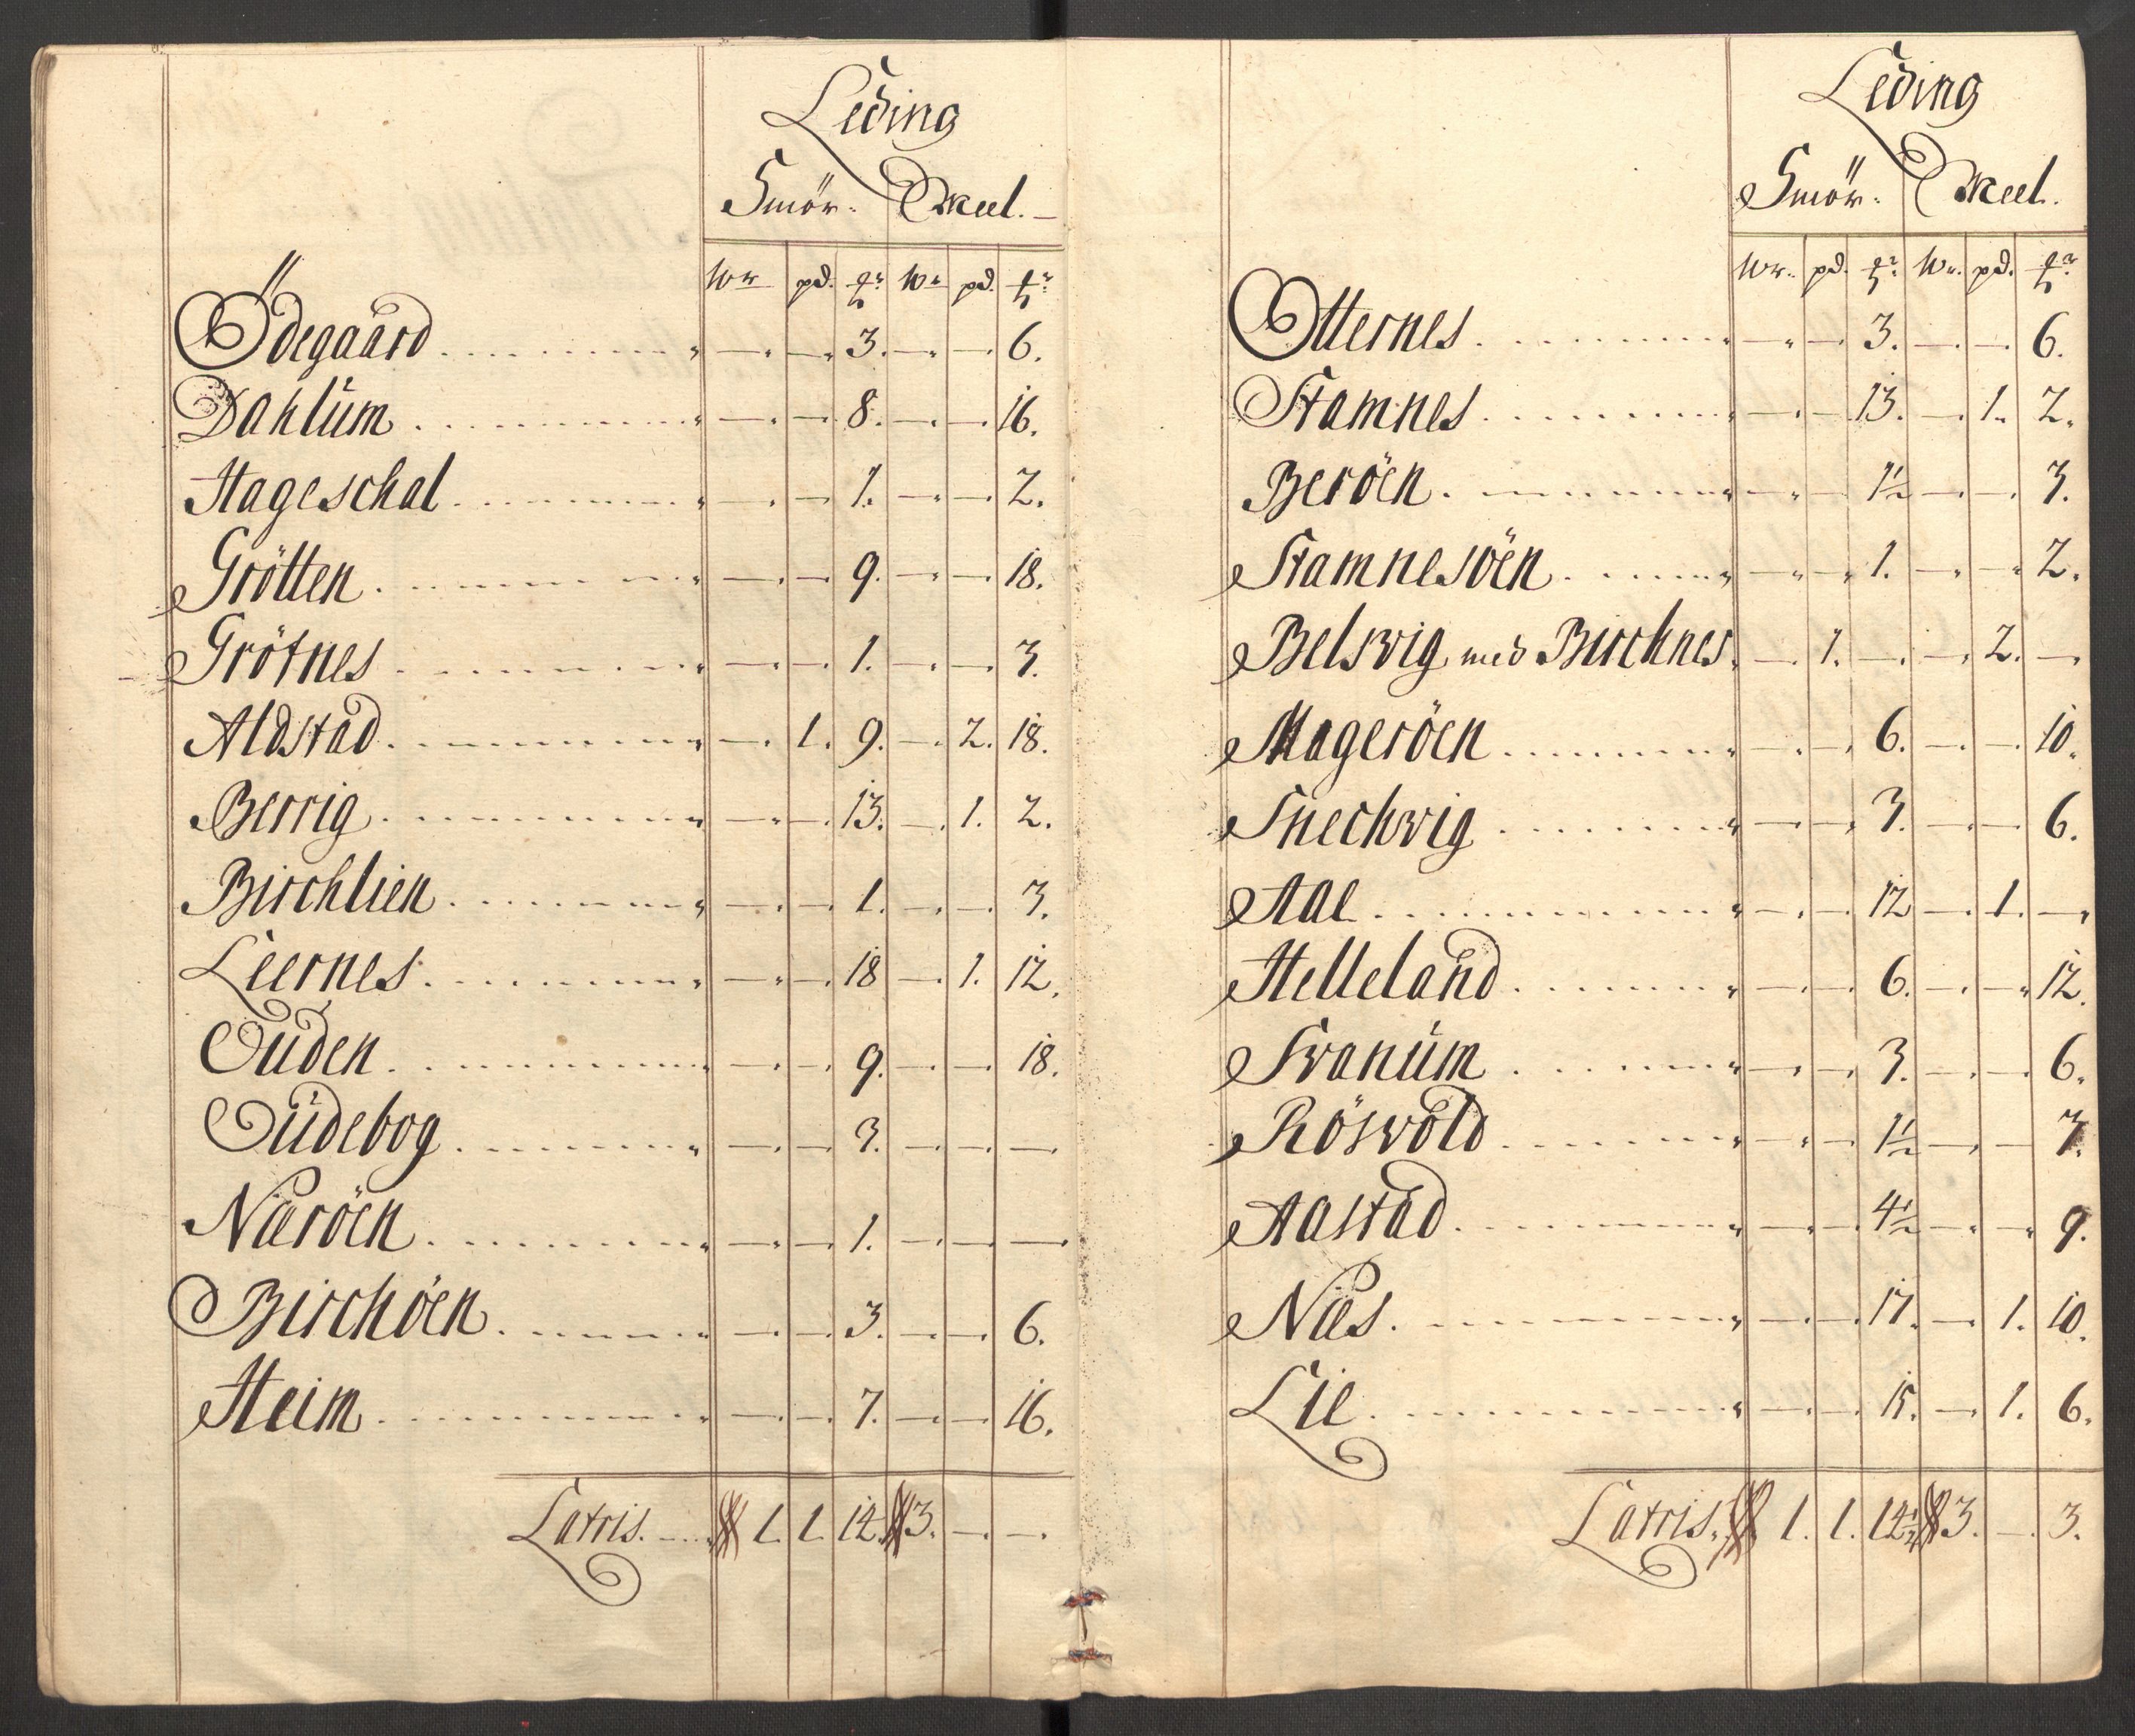 Leding
Smör. Meel.
Wr pd. ℔r Wr pd. ℔r
Ödegaard 3. 6.
Dahlüm 8. 16.
Hageschal 1. 2.
Grötten 9. 18.
Grötnes 1. 3.
Aldstad 1. 9. 2. 18.
Berrig 13. 1. 2.
Birchlien 1. 3.
Leernes 18 1. 12.
Ouden 9. 18.
Oüdebog 3.
Næröen 1.
Birchöen 3. 6.
Heim 7. 16.
Latris. 1. 1. 12. 3.
Leding
Smör. Meel.
Wr. pd. ℔r Wr. pd. ℔r
Otternes 3. 6.
Stamnes 13. 1. 2.
Beröen 1½ 3.
Stamnesöen 1. 2.
Belsvig med Birchnes 1. 2.
Mageröen 6. 10.
Snechvig 3. 6.
Aae 12 1.
Helleland 6. 12.
Svanüm 3. 6.
Rösvold 1½ 3.
Aastad 4½ 9.
Næs 17. 1. 10.
Lie 15. 1. 6.
Latris. 1. 1. 14½ 3. 3.